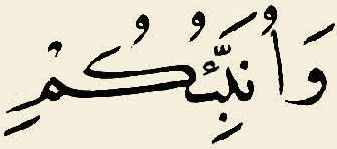 وَأُنَبِّئُكُمْ